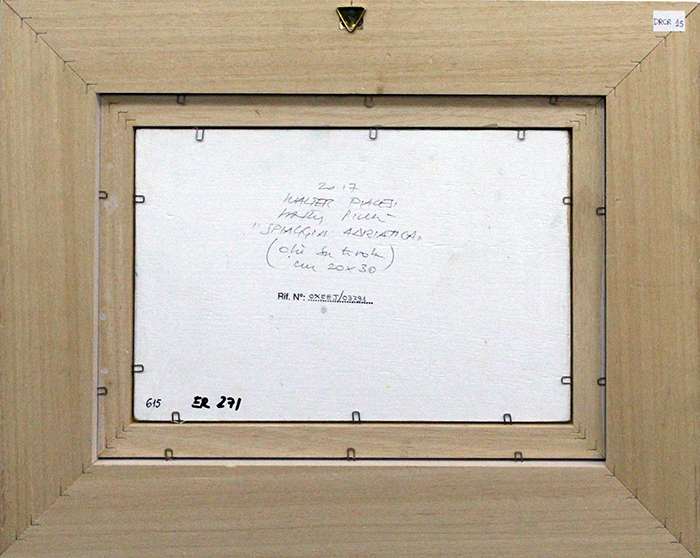 DRCR 15
2017
WALTER PIACESI
Walter Piacesi
"SPIAGGIA ADRIATICA"
(olio su tavola)
cm 20x30
Rif. N°:
615 ER 271